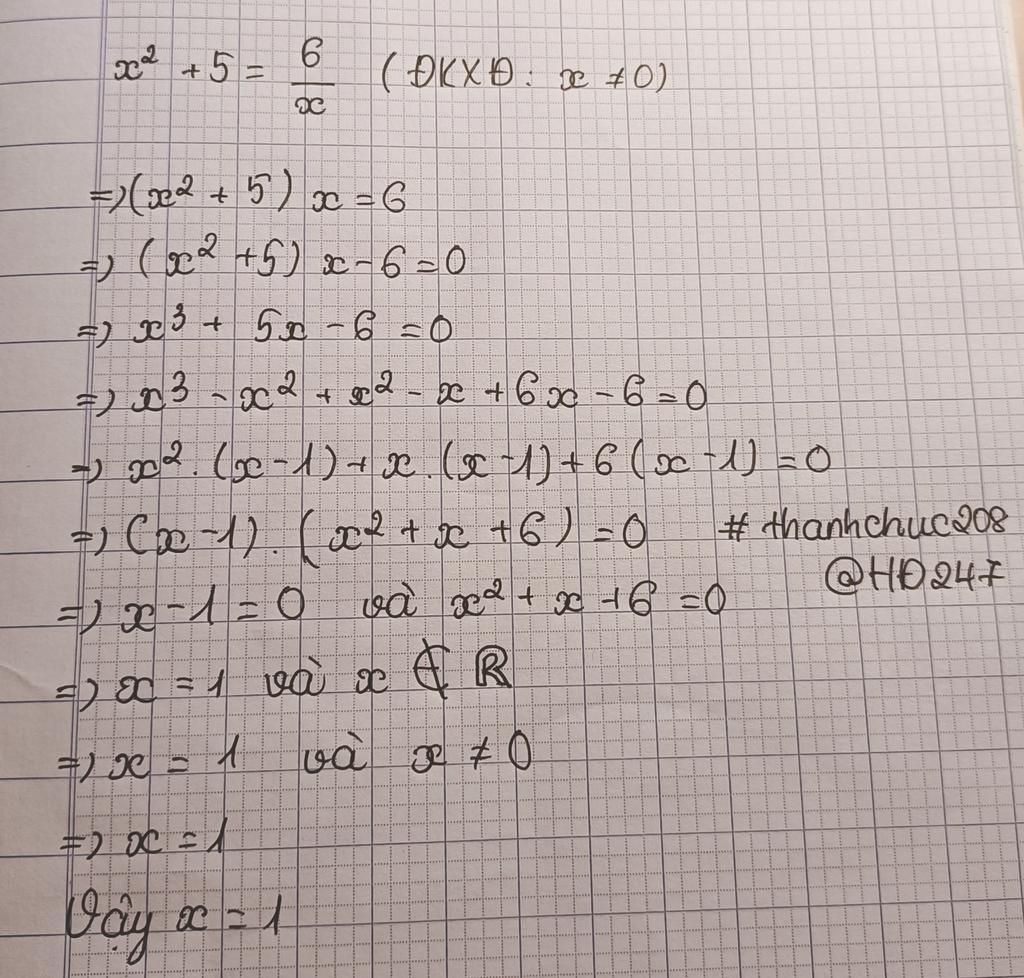 x² + 5 = 6/x (ĐKXĐ: x ≠ 0)
=> (x² + 5) x = 6
=> (x² + 5) x - 6 = 0
=> x³ + 5x - 6 = 0
=> x³ - x² + x² - x + 6x - 6 = 0
=> x². (x - 1) + x. (x - 1) + 6 (x - 1) = 0
=> (x - 1). (x² + x + 6) = 0 # thanhchuc208
@HĐ247
=> x - 1 = 0 và x² + x + 6 = 0
=> x = 1 và x ∉ ℝ
=> x = 1 và x ≠ 0
=> x = 1
Vậy x = 1